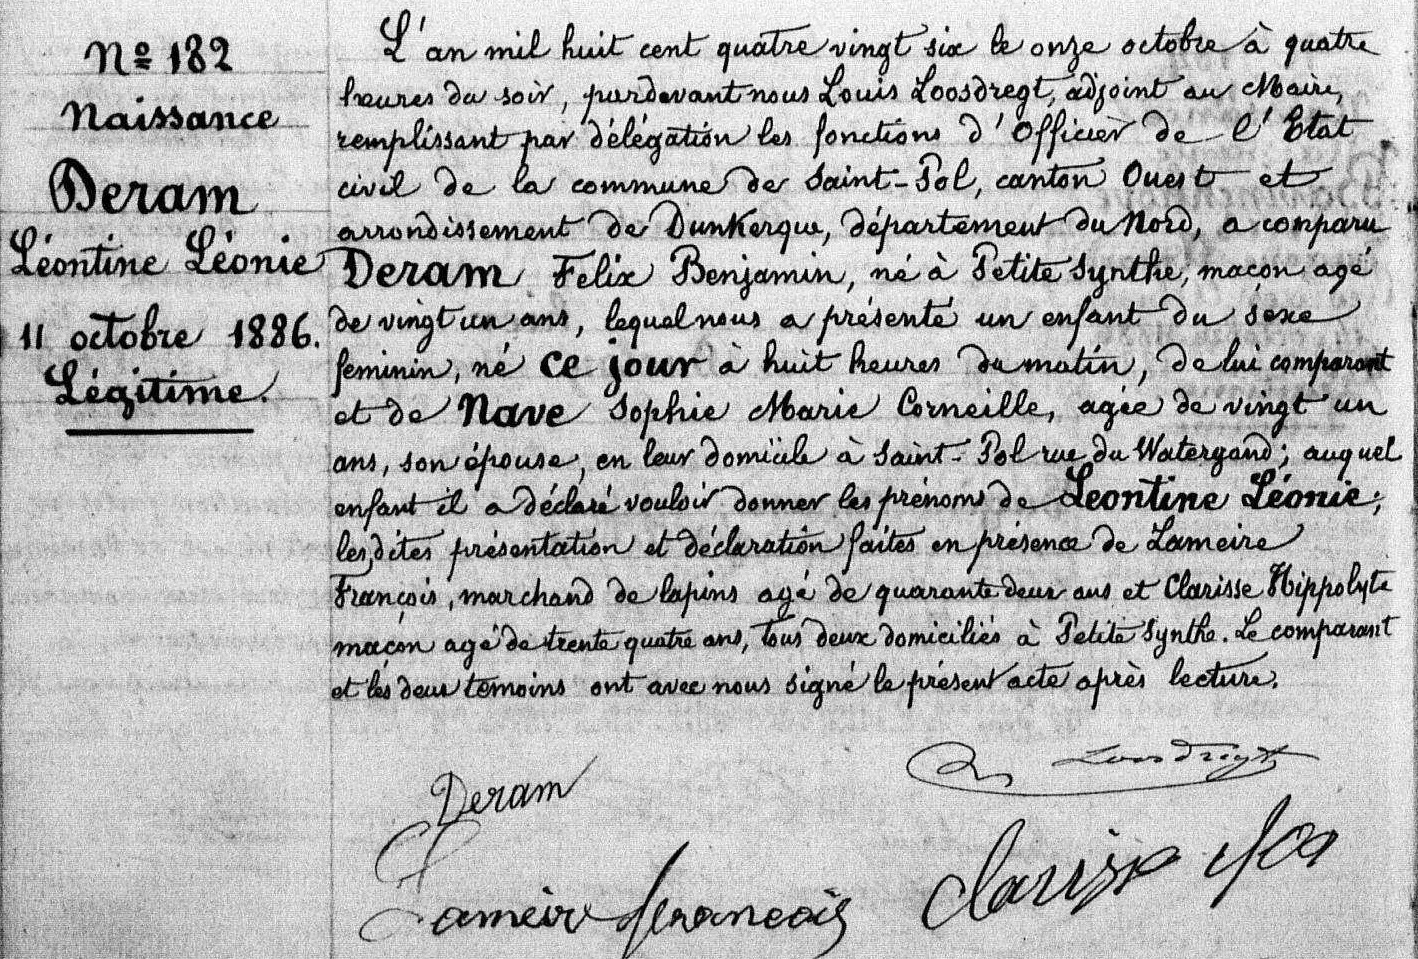 Nº 182
Naissance
Deram
Léontine Léonie
11 octobre 1886.
Légitime.
L'an mil huit cent quatre vingt six le onze octobre à quatre
heures du soir, pardevant nous Louis Loosdregt, adjoint au Maire,
remplissant par délégation les fonctions d'Officier de l'Etat
civil de la commune de Saint-Pol, canton Ouest et
arrondissement de Dunkerque, département du Nord, a comparu
Deram Felix Benjamin, né à Petite Synthe, maçon agé
de vingt un ans, lequel nous a présenté un enfant du sexe
feminin, né ce jour à huit heures du matin, de lui comparant
et de Nave Sophie Marie Corneille, agée de vingt un
ans, son épouse, en leur domicile à Saint-Pol rue du Watergand; auquel
enfant il a déclaré vouloir donner les prénoms de Leontine Léonie;
les dites présentation et déclaration faites en présence de Lameire
François, marchand de lapins agé de quarante deux ans et Clarisse Hippolyte
maçon agé de trente quatre ans, tous deux domiciliés à Petite Synthe. Le comparant
et les deux témoins ont avec nous signé le présent acte après lecture.
Loosdregt
Deram
Lameire françois
Clarisse